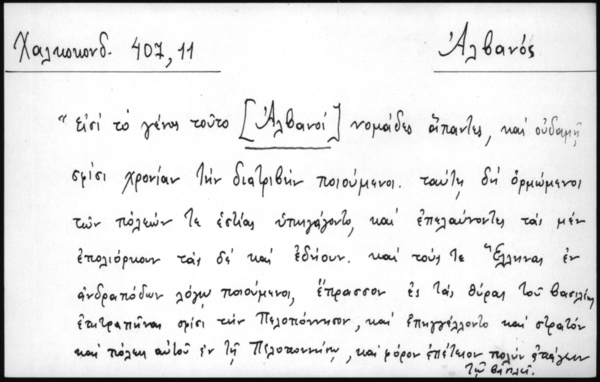 Χαλκοκονδ. 407, 11
Ἀλβανός
"εἰσὶ τὸ γένος τοῦτο [Ἀλβανοί] νομάδες ἅπαντες, καὶ οὐδαμῇ
σφίσι χρονίαν τὴν διατριβὴν ποιούμενοι. ταύτῃ δὴ ὁρμώμενοι
τῶν πόλεών τε ἔστιας ὑπηγάγοντο, καὶ ἐπελαύνοντες τὰς μὲν
ἐπολιόρκουν τὰς δὲ καὶ ἐδῄουν. καὶ τούς τε Ἕλληνας ἐν
ἀνδραπόδων λόγῳ ποιούμενοι, ἔπρασσον ἐς τὰς θύρας τοῦ βασιλέως
ἐπιτραπῆναι σφίσι τὴν Πελοπόννησον, καὶ ἐπηγγέλλοντο καὶ στρατὸν
καὶ πόλεις αὐτοῦ ἐν τῇ Πελοποννήσῳ, καὶ φόρον ἐπέτειον πολὺν ἀπάγειν
τῷ βασιλεῖ.